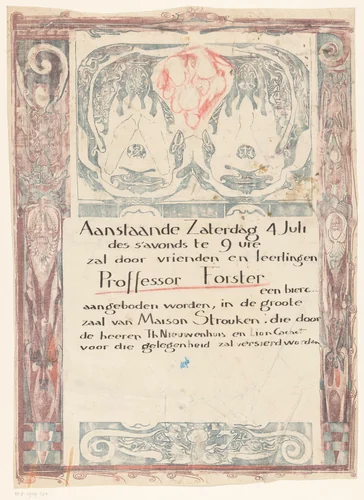 Aanstaande Zaterdag 4 Juli
des s'avonds te 9 ure
zal door vrienden en leerlingen
Proffessor Forster
een bierc...
aangeboden worden, in de groote
zaal van Maison Strouken: die door
de heeren Th. Nieuwenhuis en Lion Cachet
voor die gelegenheid zal versierd worden